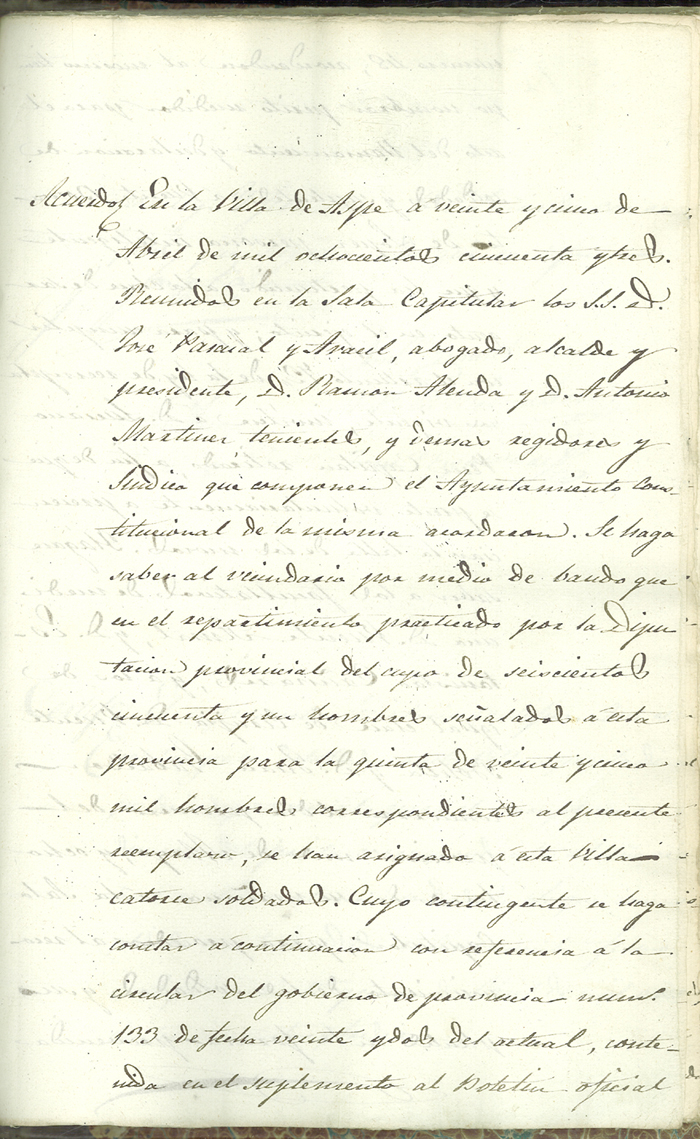 Acuerdo{ En la Villa de Aspe a veinte y cinco de
Abril de mil ochocientos cincuenta y tres.
Reunidos en la Sala Capitular los S.S. D.
José Pascual y Aracil, abogado, alcalde y
presidente, D. Ramon Alenda y D. Antonio
Martinez tenientes, y demas regidores y
Sindico que componen el Ayuntamiento Cons-
titucional de la misma acordaron. Se haga
saber al vecindario por medio de bando que
en el repartimiento practicado por la Dipu
tacion provincial del cupo de seiscientos
cincuenta y un hombres señalados á esta
provincia para la quinta de veinte y cinco
mil hombres correspondientes al presente
reemplazo, se han asignado á esta Villa
catorce soldados. Cuyo contingente se haga
constar a continuacion con referencia á la
circular del gobierno de provincia num.
133 de fecha veinte y dos del actual, conte-
nida en el suplemento al Boletin oficial